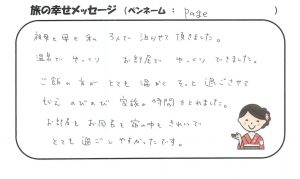 旅の幸せメッセージ（ペンネーム： Page ）
祖母と母と私 3人で 泊らせて頂きました。
温泉で ゆっくり お部屋で ゆっくり できました。
ご飯の方が とても 温かく そっと 過ごさせて
もらえ のびのび 家族の時間をとれました。
お部屋と お風呂も 宿の中も きれいで
とても 過ごしやすかったです。